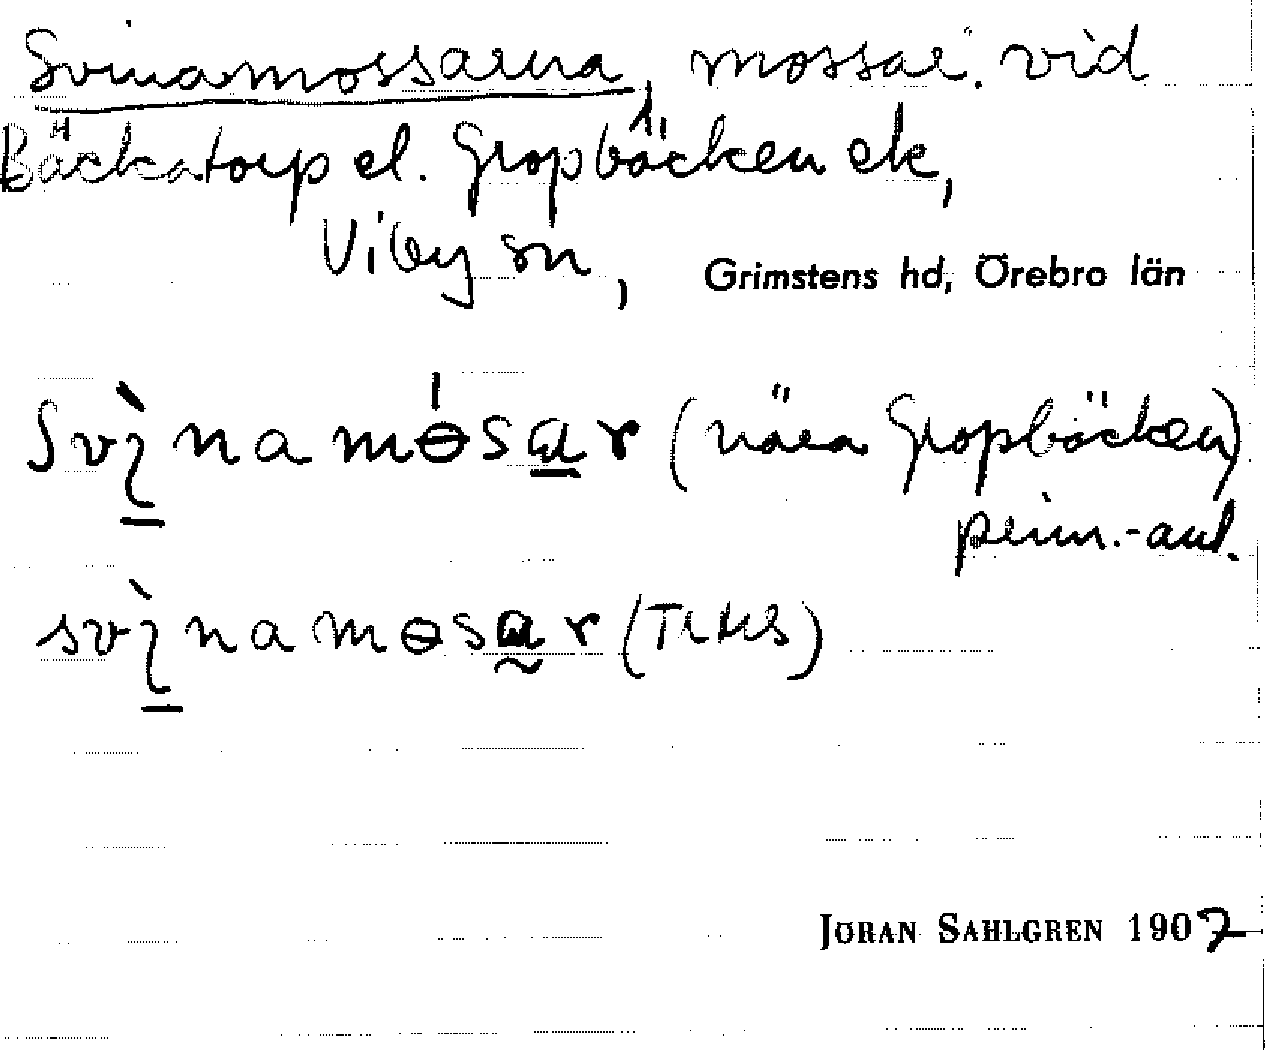 Svinamossarna, mossar. vid
Bäckatorp el. Gropbäcken ek,
Viby sn, Grimstens hd, Örebro län
svì̱namɵ́sa̱r (nära Gropbäcken)
prim.-aul.
svì̱namɵsa̰r
JÖRAN SAHLGREN 1907